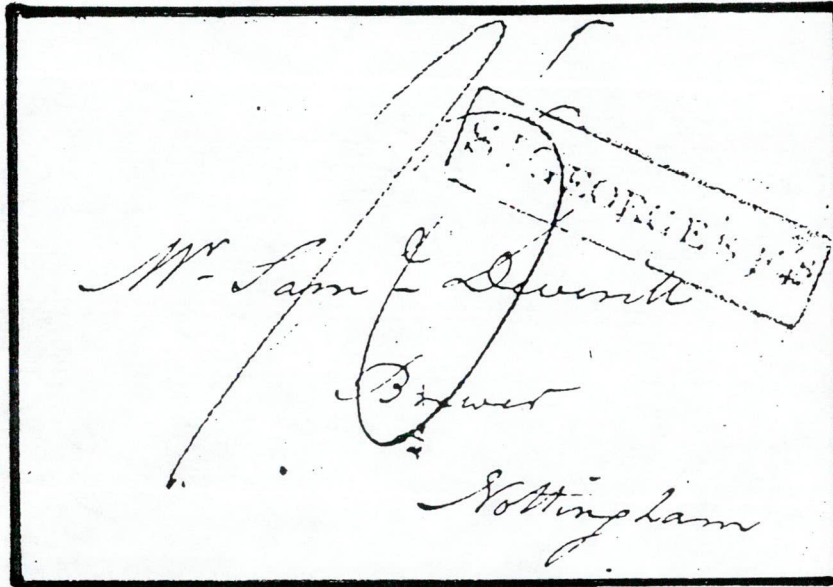 St GEORGE'S
Mr. Saml Deverill
Brewer
Nottingham